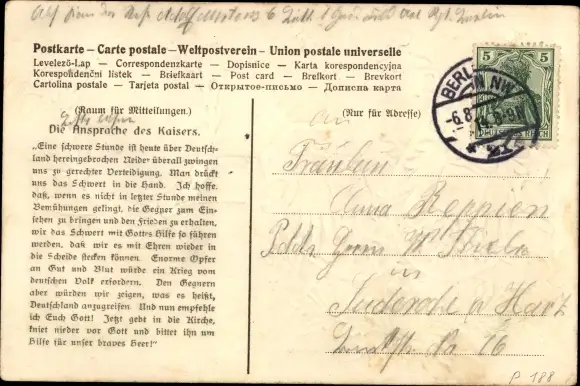 Postkarte – Carte postale – Weltpostverein – Union postale universelle
Levelező-Lap — Correspondenzkarte — Dopisnice — Karta korespondencyjna
Korespondenční lístek — Briefkaart — Post card — Brefkort — Brevkort
Cartolina postale — Tarjeta postal — Открытое-письмо — Дописна карта
5 5
BERLIN NW
-6.8.
8-9N
(Raum für Mitteilungen.)
(Nur für Adresse)
Die Ansprache des Kaisers.
„Eine schwere Stunde ist heute über Deutsch-
land hereingebrochen Neider überall zwingen
uns zu gerechter Verteidigung. Man drückt
uns das Schwert in die Hand. Ich hoffe,
daß, wenn es nicht in letzter Stunde meinen
Bemühungen gelingt, die Gegner zum Ein-
sehen zu bringen und den Frieden zu erhalten,
wir das Schwert mit Gottes Hilfe so führen
werden, daß wir es mit Ehren wieder in
die Scheide stecken können. Enorme Opfer
an Gut und Blut würde ein Krieg vom
deutschen Volk erfordern. Den Gegnern
aber würden wir zeigen, was es heißt,
Deutschland anzugreifen. Und nun empfehle
ich Euch Gott! Jetzt geht in die Kirche,
kniet nieder vor Gott und bittet ihn um
Hilfe für unser braves Heer!“
Fräulein
Anna Reppien
in
Harz
16
P 188